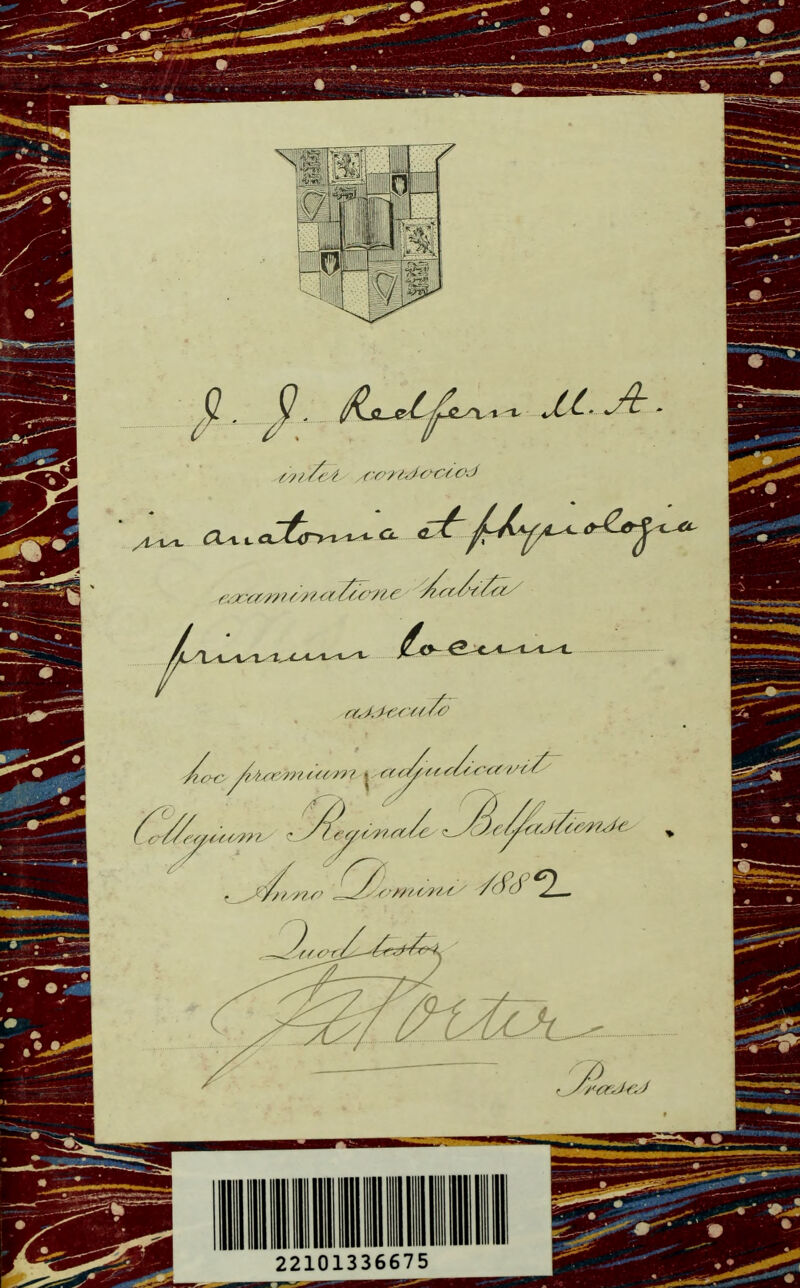 J. J. Redfern M. A.
inter consocios
in anatomia et physiologia
examinatione habita
primum locum
assecuto
hoc præmium adjudicavit
Collegium Reginale Belfastiense
Anno Domini 1882
Quod testor
J L Porter
Præses
22101336675